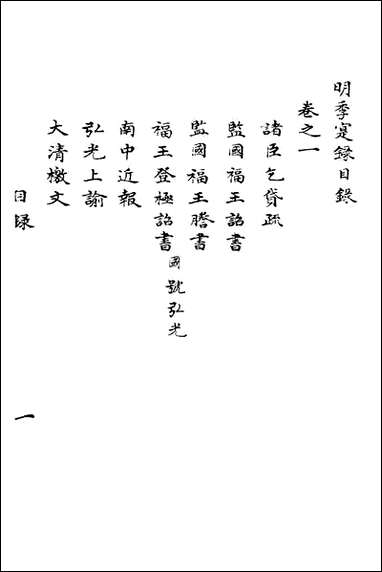 明季寔録目錄
卷之一
諸臣乞貸疏
監國福王詔書
監國福王謄書
福王登極詔書 國號弘光
南中近報
弘光上諭
大清檄文
目録
一